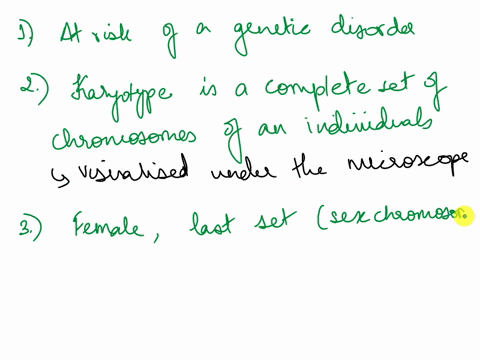 1) At risk of a genetic disorder
2.) Karyotype is a complete set of
chromosomes of an individuals
↳ visualised under the microscope
3.) Female, last set (sex chromoso